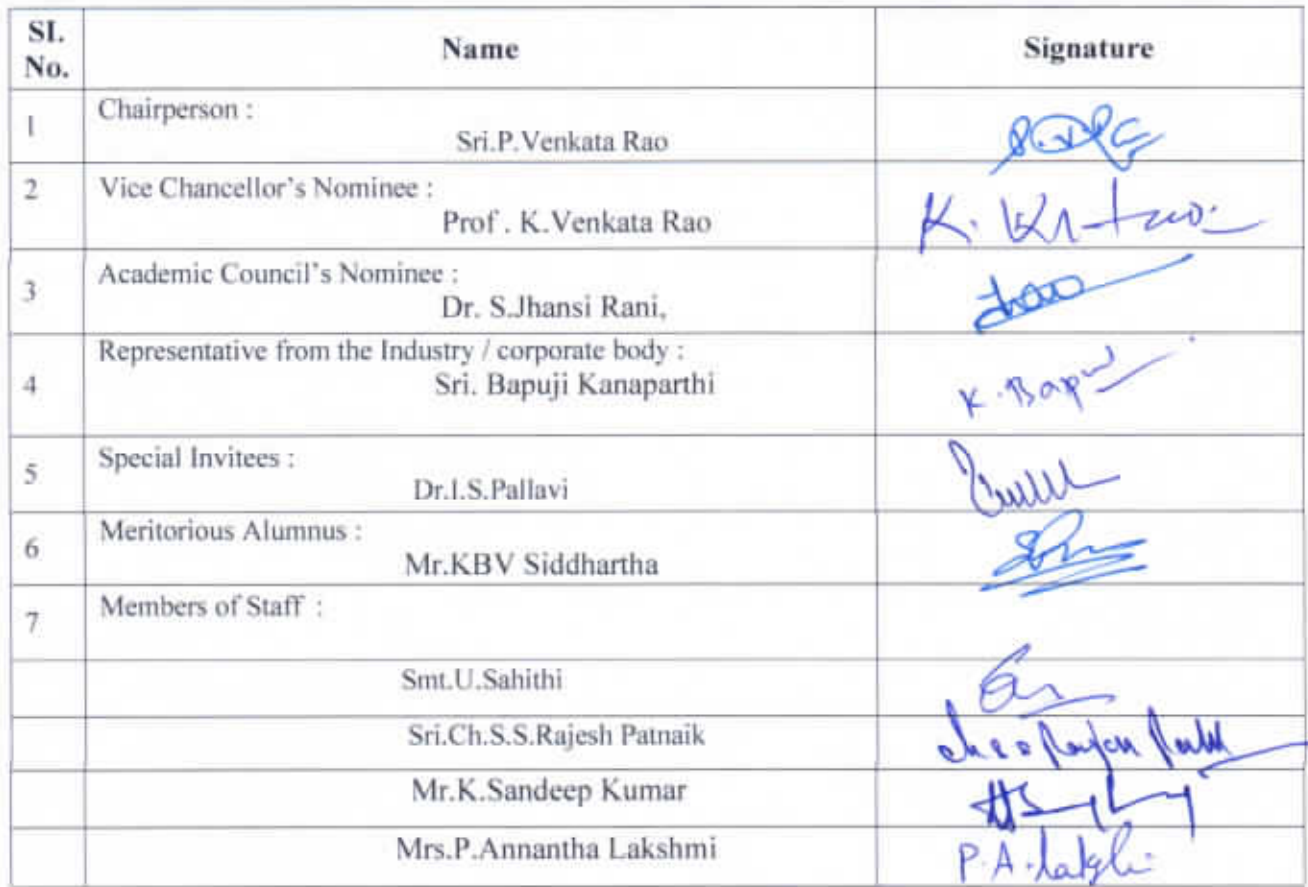 SI. No. Name Signature
1 Chairperson :
Sri.P.Venkata Rao
2 Vice Chancellor's Nominee :
Prof . K.Venkata Rao
3 Academic Council's Nominee :
Dr. S.Jhansi Rani,
4 Representative from the Industry / corporate body :
Sri. Bapuji Kanaparthi K. Bapu
5 Special Invitees :
Dr.I.S.Pallavi
6 Meritorious Alumnus :
Mr.KBV Siddhartha
7 Members of Staff :
Smt.U.Sahithi
Sri.Ch.S.S.Rajesh Patnaik
Mr.K.Sandeep Kumar
Mrs.P.Annantha Lakshmi P.A.